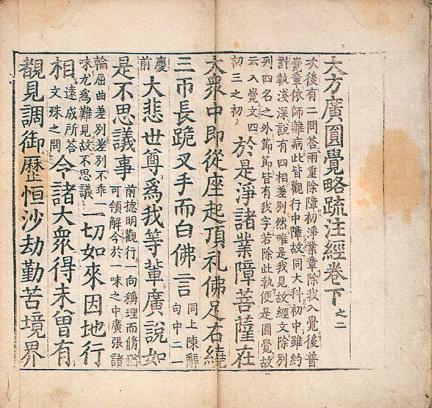 大方廣圓覺略疏注經卷下之二
次後有二問荅兩重除障初淨業章除我入覺後普
覺章依師離病此皆觀行中障故同大科初中雖約
計執淺深說有四相差別然唯是我見故經文除列
列四名之外節節皆有我字若除此執便是圓覺故
云入覺文四
初三之初
於是淨諸業障菩薩在
大衆中即從座起頂礼佛足右繞
三帀長跪叉手而白佛言
同上陳辭
句中二一
慶
前
大悲世尊爲我等輩廣說如
是不思議事
前揔明觀行一向稱理而脩猶
可領解今於一味之中廣張諸
輪屈曲差別差別不乖一
味尤爲難見故不思議
一切如來因地行
相
遠成所荅
文殊之問
今諸大衆得未曾有
覩見調御歷恒沙劫勤苦境界